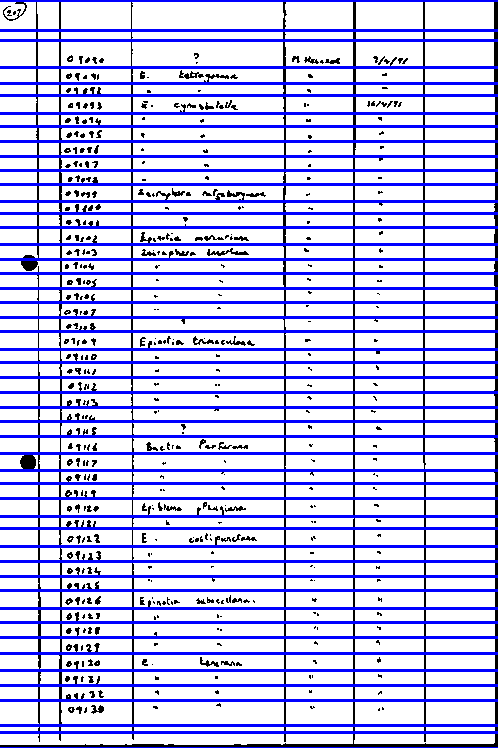 207
09090 ? M. Hallade 7/4/91
09091 E. tetragonana " "
09092 " " " "
09093 E. cynosbatella " 16/4/91
09094 " " " "
09095 " " " "
09096 " " " "
09097 " " " "
09098 " " " "
09099 Zeiraphera ratzeburgiana " "
09100 " " " "
09101 ? " "
09102 Epinotia mercuriana " "
09103 Zeiraphera insertana " "
09104 " " " "
09105 " " " "
09106 " " " "
09107 " " " "
09108 " " "
09109 Epinotia trimaculana " "
09110 " " " "
09111 " " " "
09112 " " " "
09113 " " " "
09114 " " " "
09115 ? " "
09116 Bactra furfurana " "
09117 " " " "
09118 " " " "
09119 " " " "
09120 Epiblema "
09121 " " " "
09122 E. costipunctana " "
09123 " " " "
09124 " " " "
09125 " " " "
09126 Epinotia subocellana. " "
09127 " " " "
09128 " " " "
09129 " " " "
09130 E. " "
09131 " " " "
09132 " " " "
09133 " " " "